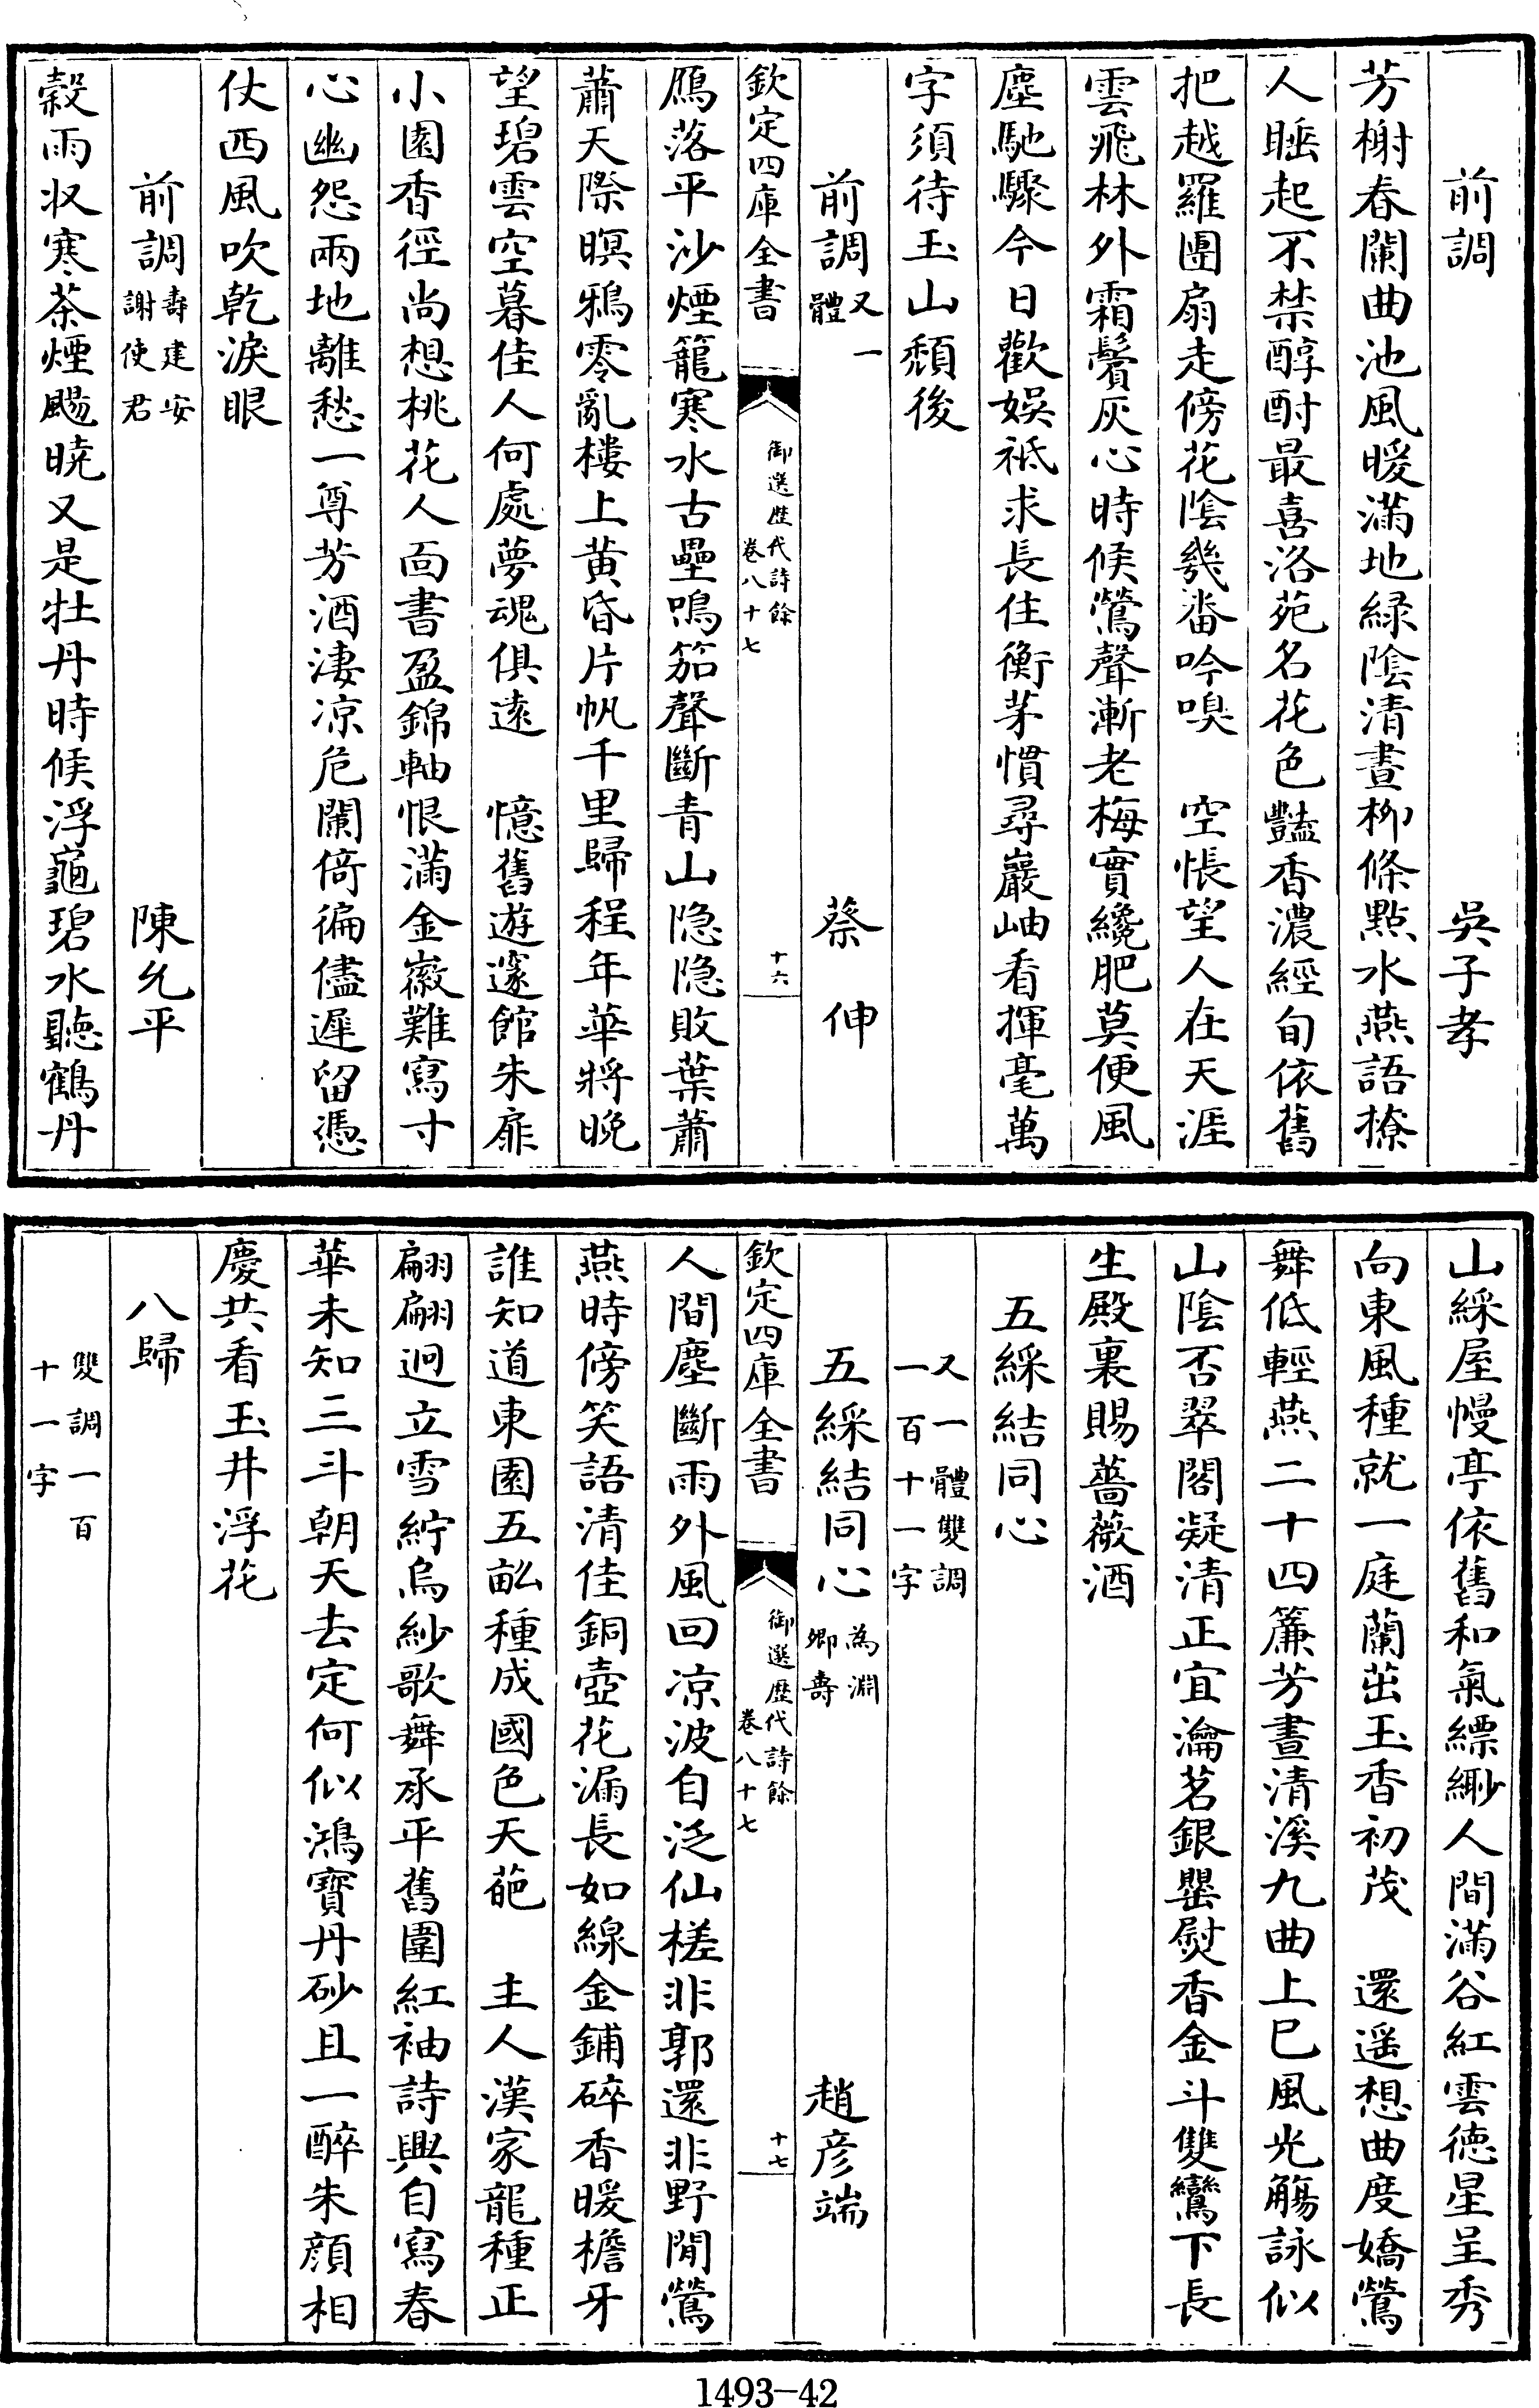 前調　吳子孝
芳榭春闌曲池風暖滿地緑陰清晝栁條點水燕語撩
人睡起不禁醇酎最喜洛苑名花色豔香濃經旬依舊
把越羅團扇走傍花陰幾畨吟嗅　空悵望人在天涯
雲飛林外霜鬢灰心時候鶯聲漸老梅實纔肥莫便風
塵馳驟今日歡娛祗求長住衡茅慣尋巖岫看揮毫萬
字須待玉山頽後
前調又一體　蔡伸
欽定四庫全書　御選歴代詩餘　卷八十七　十六
鴈落平沙煙籠寒水古壘鳴笳聲斷青山隐隐敗葉蕭
蕭天際暝鴉零亂樓上黄昏片帆千里歸程年華將晚
望碧雲空暮佳人何處夢魂俱遠　憶舊遊邃館朱扉
小園香徑尚想桃花人面書盈錦軸恨滿金徽難寫寸
心幽怨兩地離愁一尊芳酒淒凉危闌倚徧儘遲留憑
仗西風吹乾淚眼
前調壽建安謝使君　陳允平
穀雨収寒茶煙颺曉又是牡丹時候浮龜碧水聽鶴丹
山綵屋幔亭依舊和氣縹緲人間滿谷紅雲德星呈秀
向東風種就一庭蘭茁玉香初茂　還遥想曲度嬌鶯
舞低輕燕二十四簾芳晝清溪九曲上巳風光觴詠似
山陰否翠閣凝清正宜瀹茗銀罌熨香金斗雙鸞下長
生殿裏賜薔薇酒
五綵結同心
又一體雙調一百十一字
五綵結同心為淵卿壽　趙彥端
欽定四庫全書　御選歴代詩餘　卷八十七　十七
人間塵斷雨外風回凉波自泛仙槎非郭還非野閒鶯
燕時傍笑語清佳銅壺花漏長如線金鋪碎香暖檐牙
誰知道東園五畝種成國色天葩　主人漢家龍種正
翩翩迥立雪紵烏紗歌舞承平舊圍紅袖詩興自寫春
華未知三斗朝天去定何似鴻寳丹砂且一醉朱顔相
慶共看玉井浮花
八歸
雙調一百十一字
1493-42